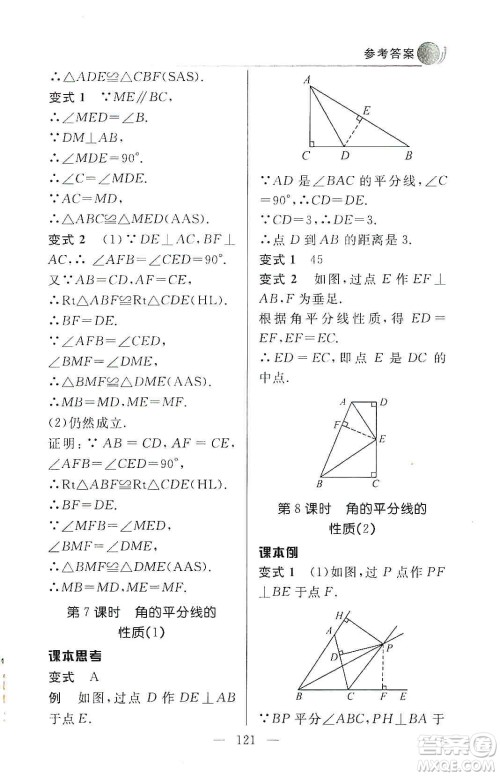 参考答案
∴△ADE≌△CBF(SAS).
变式 1 ∵ME∥BC,
∴∠MED=∠B.
∵DM⊥AB,
∴∠MDE=90°.
∴∠C=∠MDE.
∵AC=MD,
∴△ABC≌△MED(AAS).
变式 2 (1)∵DE⊥AC,BF⊥
AC,∴∠AFB=∠CED=90°.
又∵AB=CD,AF=CE,
∴Rt△ABF≌Rt△CDE(HL).
∴BF=DE.
∵∠AFB=∠CED,
∠BMF=∠DME,
∴△BMF≌△DME(AAS).
∴MB=MD,MF=ME.
(2)仍然成立.
证明:∵AB=CD,AF=CE,
∠AFB=∠CED=90°,
∴Rt△ABF≌Rt△CDE(HL).
∴BF=DE.
∵∠MFB=∠MED,
∠BMF=∠DME,
∴△BMF≌△DME(AAS).
∴MB=MD,MF=ME.
第 7 课时 角的平分线的
性质(1)
课本思考
变式 A
例 如图,过点 D 作 DE⊥AB
于点 E.
A
E
C
D
B
∵AD 是∠BAC的平分线,∠C=
90°,∴CD=ED.
∵CD=3,∴ED=3.
∴点 D 到AB 的距离是 3.
变式 1 45
变式 2 如图,过点 E 作 EF⊥
AB,F 为垂足.
根据角平分线性质,得 EF=EC,
EF=ED.
∴ED=EC,即点 E 是 DC 的
中点.
A
D
F
E
B
C
第 8 课时 角的平分线的
性质(2)
课本例
变式 1 (1)如图,过 P 点作 PF
⊥BE于点 F.
H
A
P
D
B
C
F
E
∵BP平分∠ABC,PH⊥AB于
121